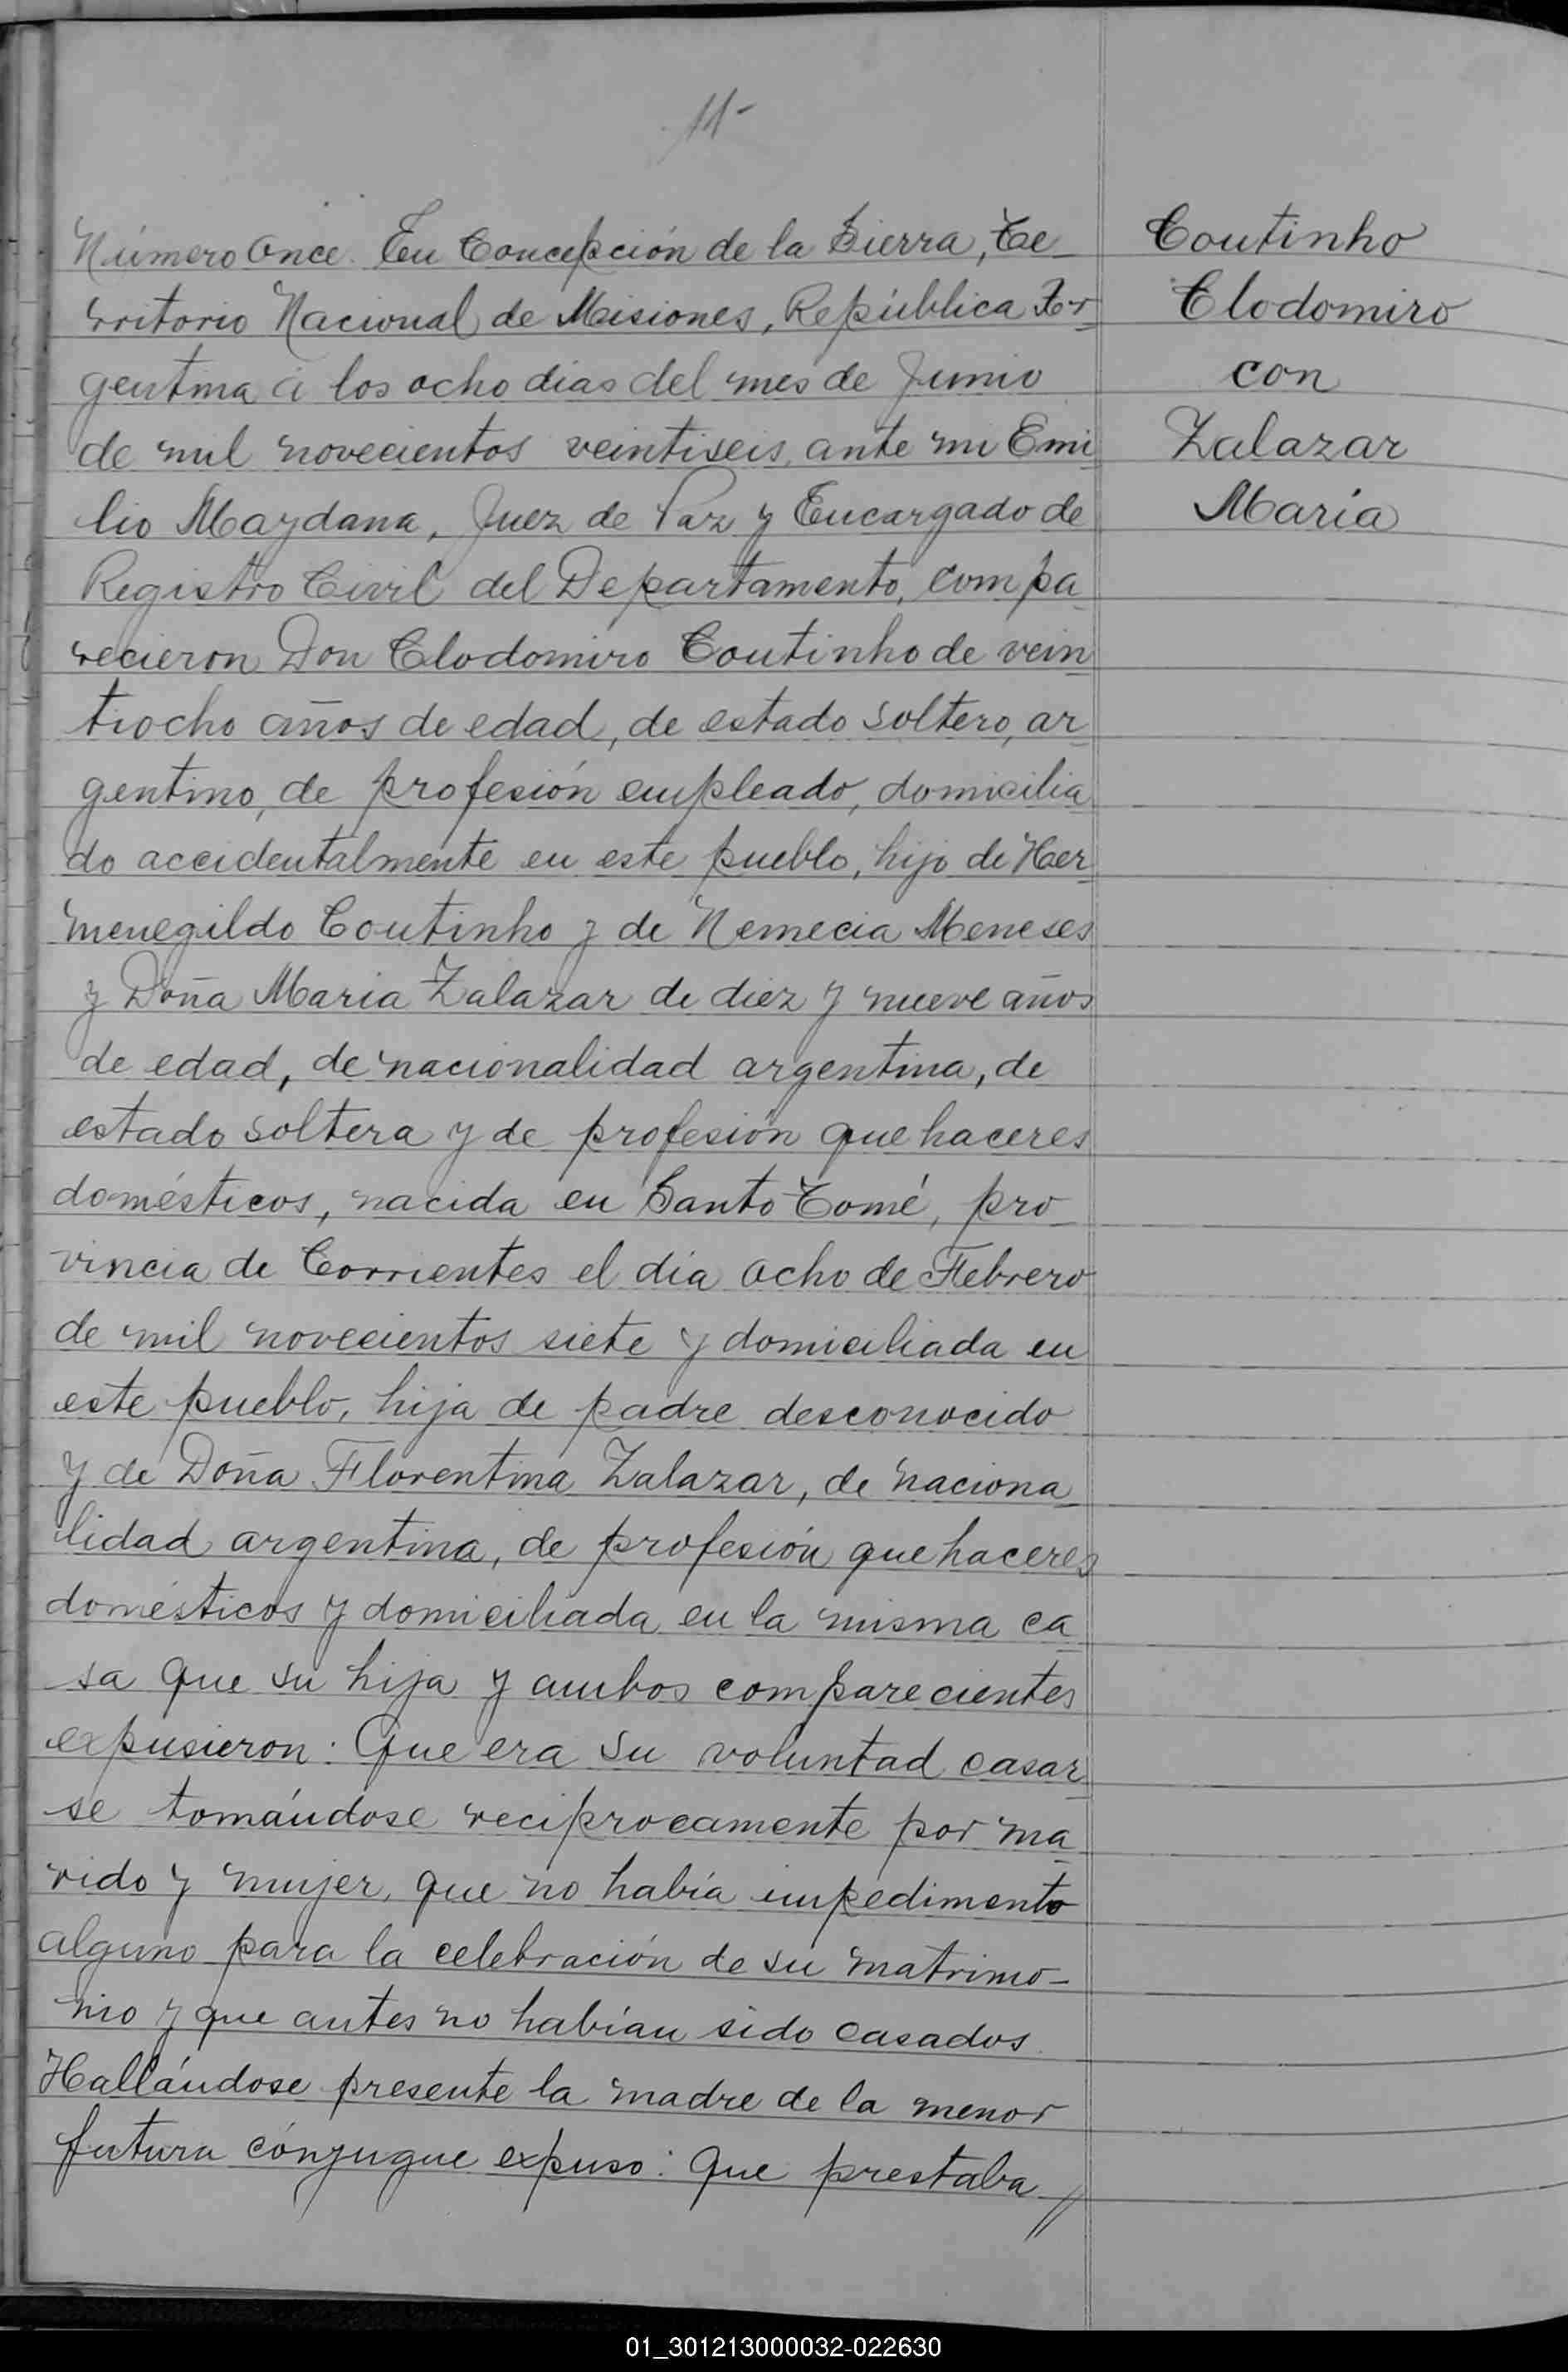 11-
Número Once. En Concepción de la Sierra, Te
rritorio Nacional de Misiones, República Ar
gentina á los ocho dias del mes de Junio
de mil novecientos veintiseis, ante mi Emi
lio Maydana, Juez de Paz y Encargado de
Registro Civil del Departamento, compa
recieron Don Clodomiro Coutinho de vein
tiocho años de edad, de estado soltero, ar
gentino, de profesión empleado, domicilia
do accidentalmente en este pueblo, hijo de Her
menegildo Coutinho y de Nemecia Meneses
y Doña Maria Zalazar de diez y nueve años
de edad, de nacionalidad argentina, de
estado soltera y de profesión que haceres
domésticos, nacida en Santo Tomé, pro
vincia de Corrientes el día ocho de Febrero
de mil novecientos siete y domiciliada en
este pueblo, hija de padre desconocido
y de Doña Florentina Zalazar, de naciona
lidad argentina, de profesión que haceres
domésticos y domiciliada en la misma ca
sa que su hija y ambos comparecientes
expusieron: Que era su voluntad casar
se tomándose reciprocamente por ma
rido y mujer, que no había impedimento
alguno para la celebración de su matrimo-
nio y que antes no habían sido casados.
Hallándose presente la madre de la menor
futura cónyugue expuso: Que prestaba //
Coutinho
Clodomiro
con
Zalazar
María
01_301213000032-022630